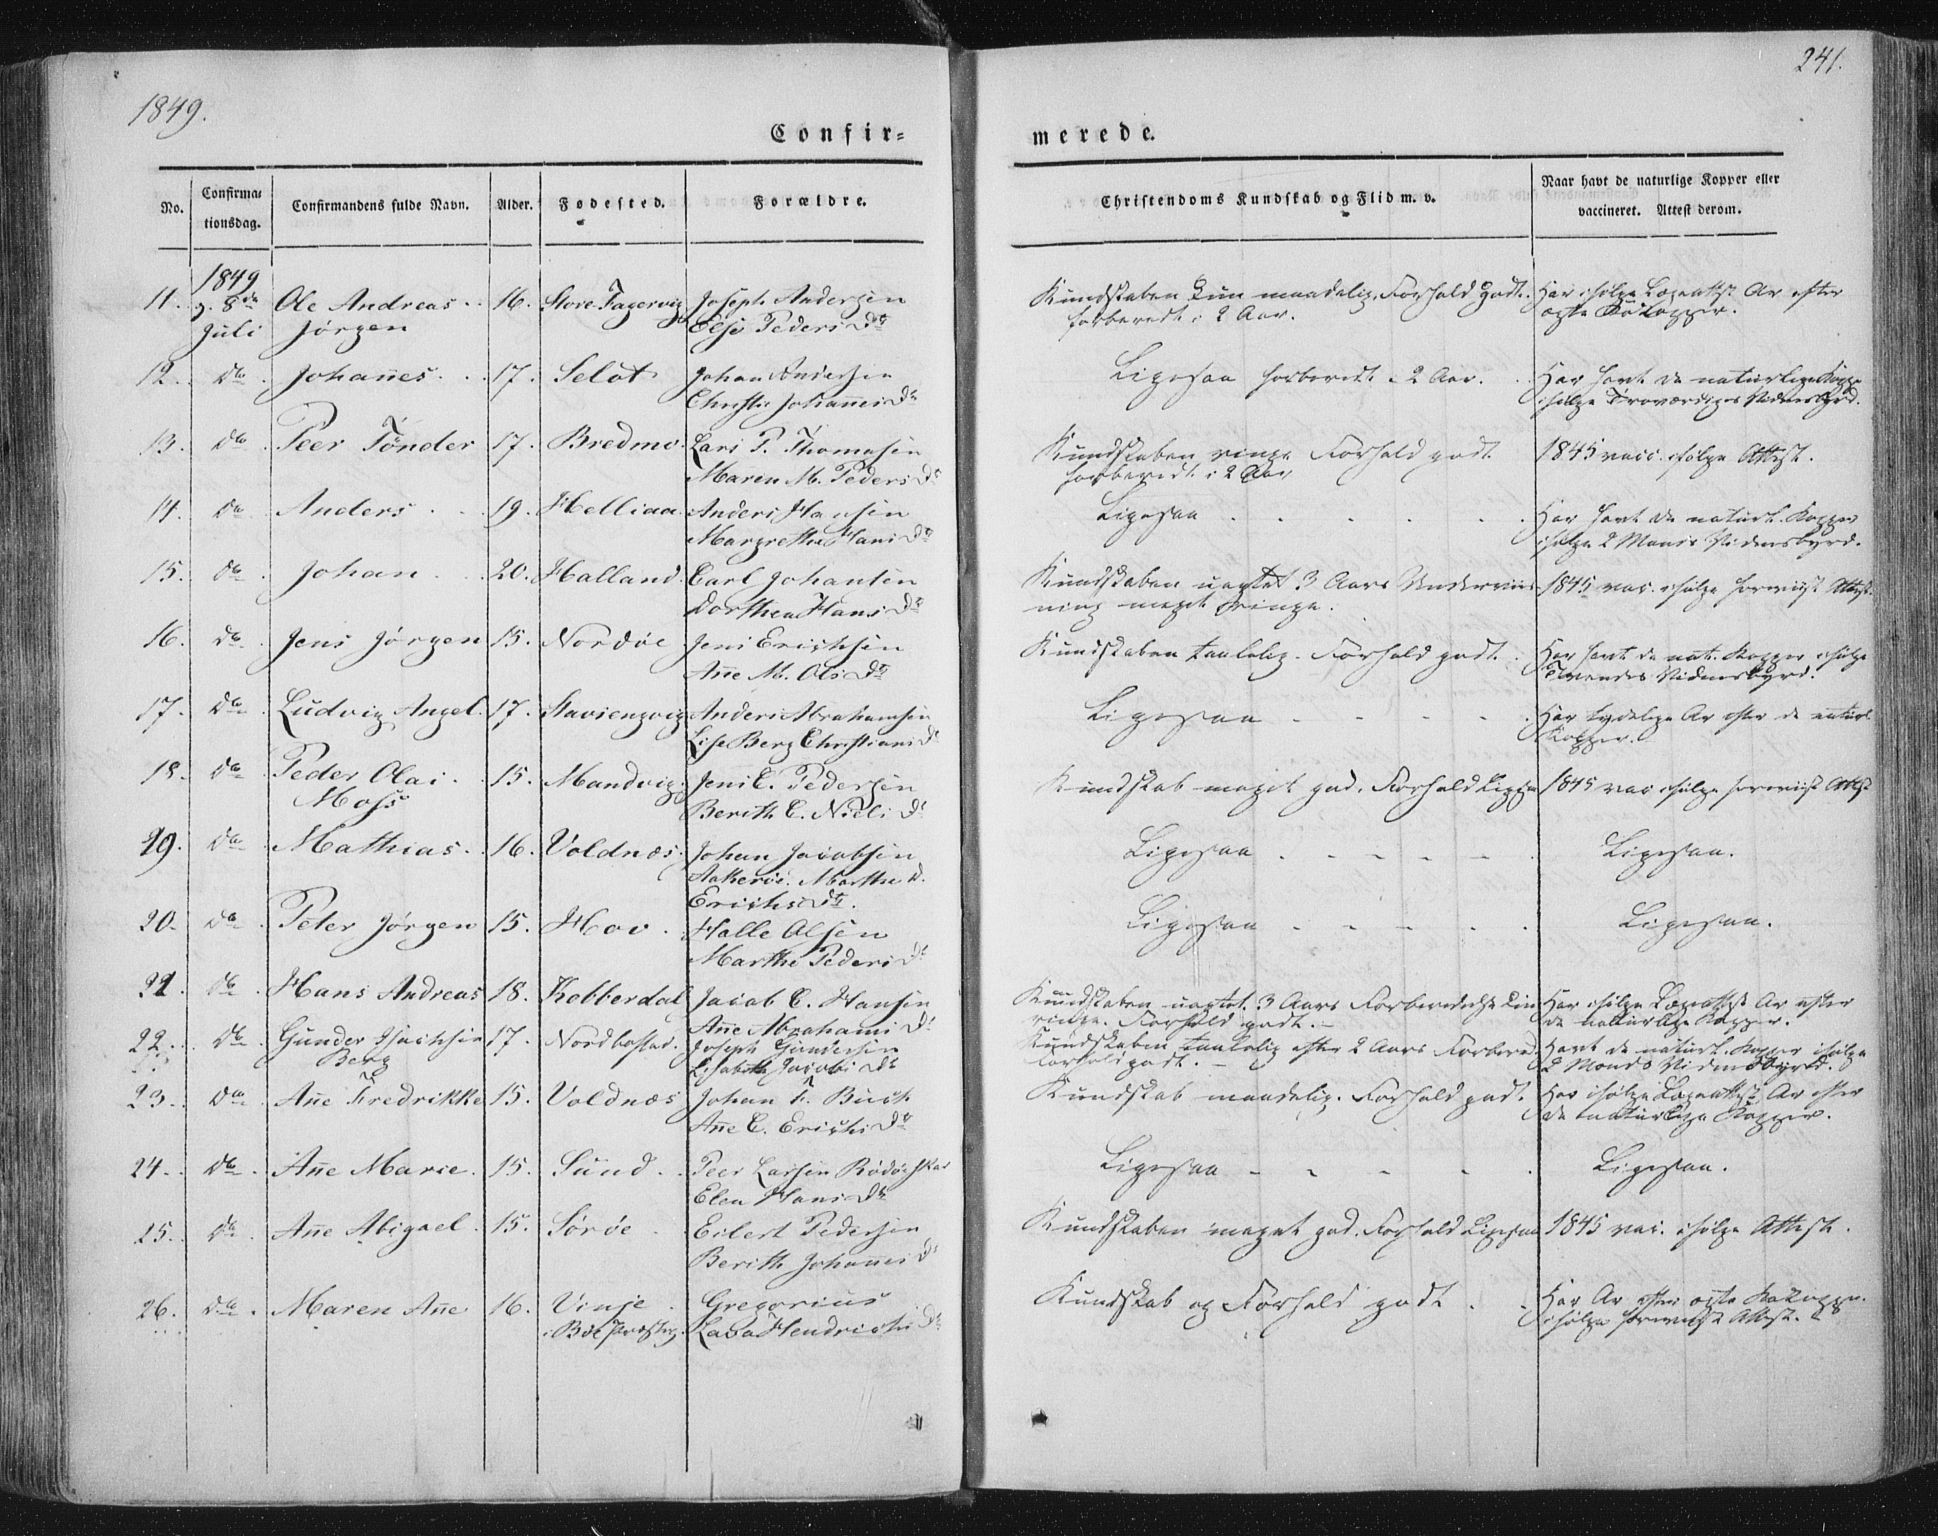 1849.
241.
Confir=
merede.
No.
Confirma=
tionsdag.
Confirmandens fulde Navn.
Alder.
Fødested.
Forældre.
Christendoms Kundskab og Flid m. v.
Naar havt de naturlige Kopper eller
vaccineret. Attest derom.
1849
11. d. 8de Ole Andreas 16. Store Fagervig Joseph Andersen Kundskaben kun maadelig, Forhold godt. Har ifølge Lægeattst Ar efter
Juli Jørgen Else Peders Dr forberedt i 2 Aar. ægte Kokopper.
12. do. Johañes. 17. Seløt Johan Andersen Ligesaa forberedt i 2 Aar. Har havt de naturlige Kopper
Johañes Dr ifølge Troværdiges Vidnesbyrd.
13. do. Peer Tønder 17. Bredmo Lars P. Thomasen Kundskaben ringe Forhold godt 1845 vacc. ifølge Attest.
Maren M. Peders Dr forberedt i 2 Aar
14. do Anders 19. Helliaa Anders Hansen Ligesaa Har havt de naturl. Kopper
Margrethe Hans Dr ifølge 2 Mands Vidnesbyrd.
15. do. Johan 20. Halland Carl Johansen Kundskaben uagtet 3 Aars Underviis 1845 vac. ifølge foreviist Attest.
Dorthea Hans Dr ning meget ringe.
16. do. Jens Jørgen 15. Nordøe Jens Erichsen Kundskaben taalelig. Forhold godt. Har havt de nat. Kopper ifølge
Añe M. Ols Dr Vidnesbyrd.
17. do. Ludvig Angel. 17. Stavsengvig Anders Abrahamsen Ligesaa Har tydelige Ar efter de naturl.
Lise Berg Christians Dr Kopper.
18. do Peder Olai 15. Mandvig. Jens C. Pedersen Kundskab meget god. Forhold Ligesaa 1845 vac ifølge foreviist Attst
Moss Berith E. Niels Dr
19. do. Mathias. 16. Voldnæs. Johan Jacobsen Ligesaa Ligesaa.
Marthe
Erichs Dr.
20. do. Peter Jørgen 15. Hov Halle Olsen Ligesaa Ligesaa.
Marthe Peders Dr
21. do Hans Andreas 18. Kobberdal Jacob C. Hansen Kundskaben uagtet 3 Aars Forberedelse kun Har ifølge Lægeattst Ar efter
Añe Abrahams Dr ringe. Forhold godt. de naturlige Kopper.
22. do. Gunder 17. Nordbostad. Joseph Gundersen Kundskaben taalelig efter 2 Aars Forbered. Havt de naturl. Kopper ifølge
Berg Lisabeth Jacobs Dr Forhold godt. 2 Mands Vidnesbyrd.
23. do. Añe Fredrikke 15. Voldnæs Johan F. Buch Kundskab maadelig. Forhold godt. Har ifølge Lægeattst Ar efter
Añe C. Erichs Dr de naturlige Kopper.
24. do. Añe Marie. 15. Sund. Peer Larsen Rødøeskar Ligesaa Ligesaa.
Elen Hans Dr
25. do. Añe Abigael. 15. Sørøe Eilert Pedersen Kundskaben meget god. Forhold Ligesaa 1845 vac. ifølge Attest.
Berith Johañes D
26. do. Maren Añe 16. Vinje Gregorius Kundskab og Forhold godt Har Ar efter ægte Kokopper.
Hendrichs Dr ifølge foreviist Attest.